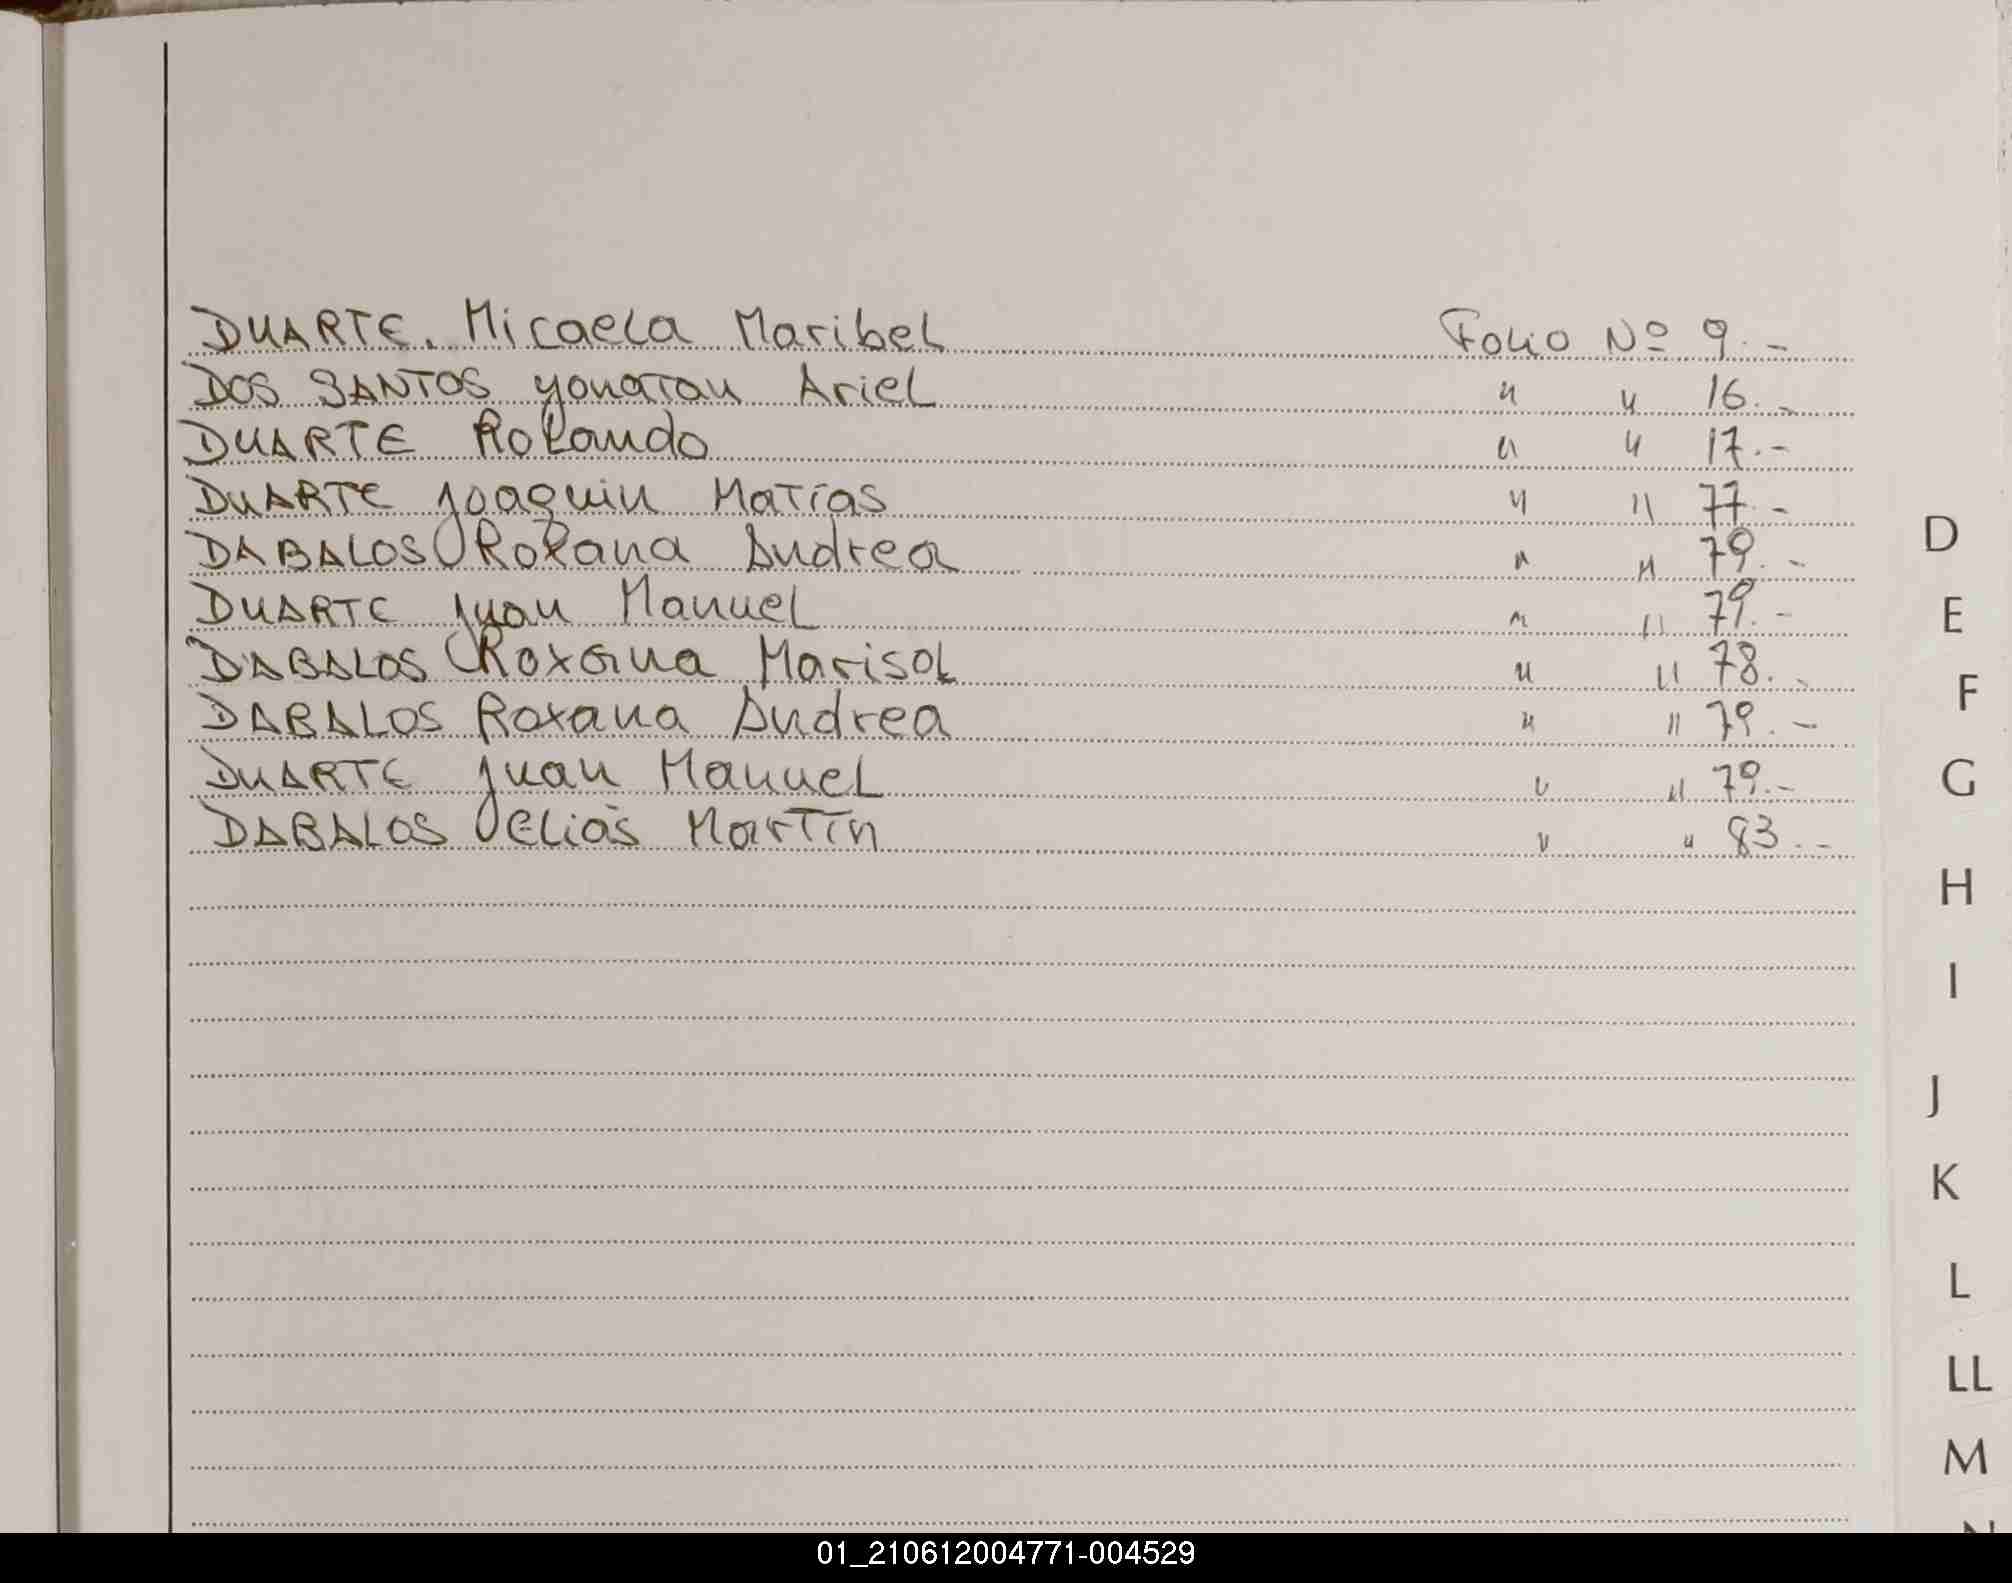 DUARTE. Micaela Maribel Folio Nº 9.-
DOS SANTOS Yonatan Ariel " " 16.-
DUARTE Rolando " " 17.-
DUARTE Joaquin Matías " " 77.-
DABALOS Roxana Andrea " " 79.-
DUARTE Juan Manuel " " 79.-
DABALOS Roxana Marisol " " 78.-
DABALOS Roxana Andrea " " 79.-
DUARTE Juan Manuel " " 79.-
DABALOS Elias Martín " " 83.-
D
E
F
G
H
I
J
K
L
LL
M
N
01_210612004771-004529